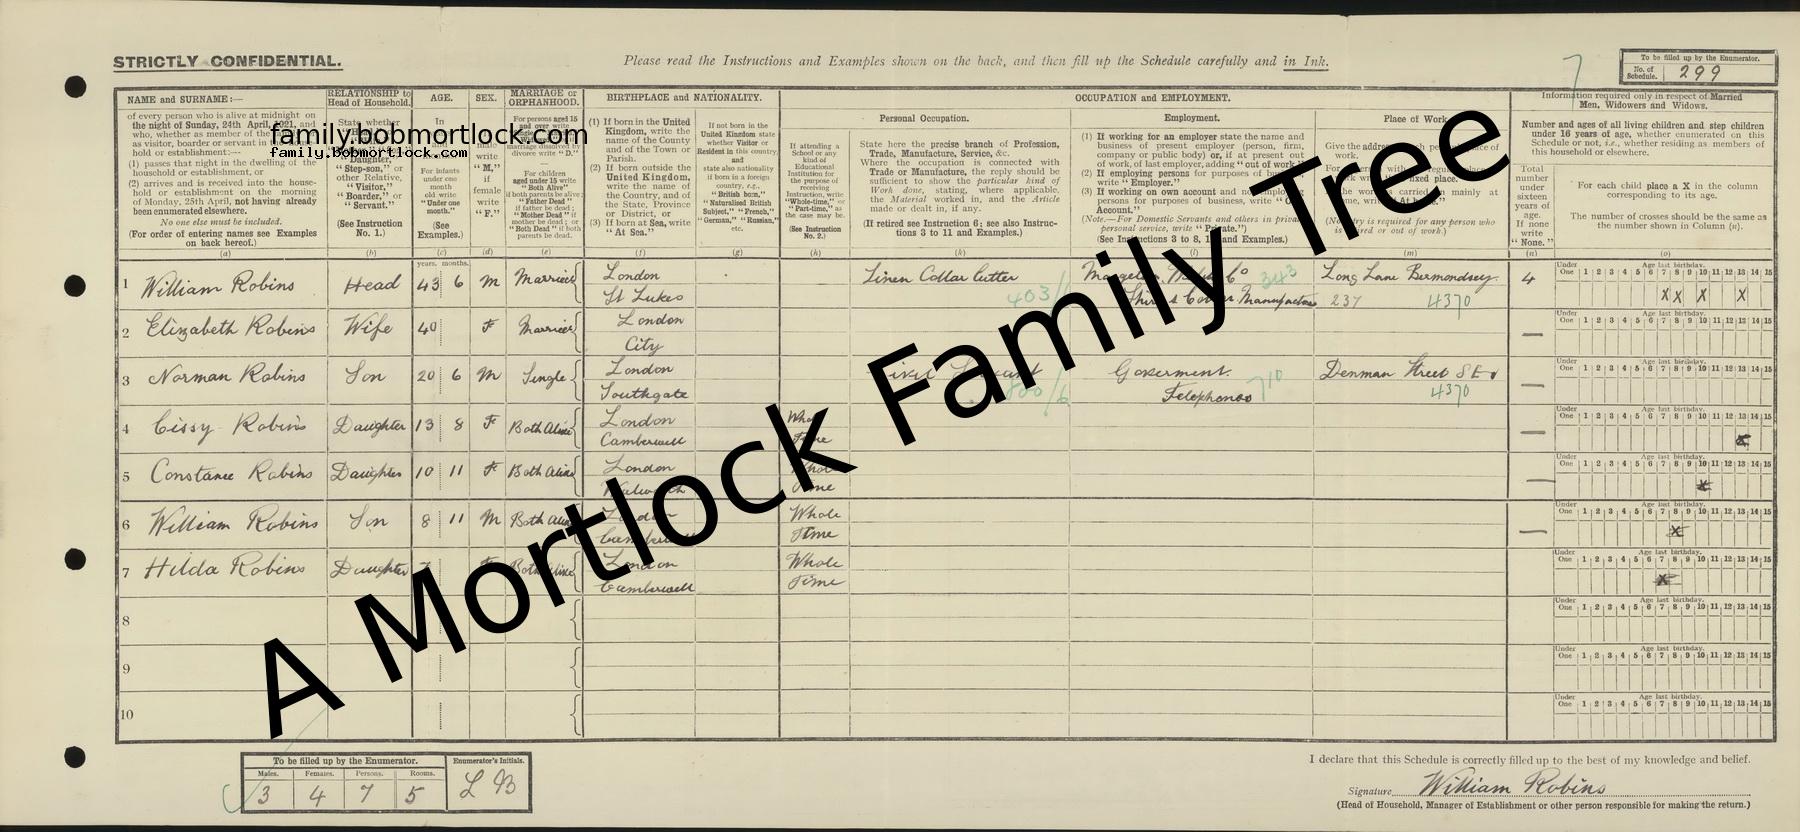 STRICTLY CONFIDENTIAL.
Please read the Instructions and Examples shown on the back, and then fill up the Schedule carefully and in Ink.
To be filled up by the Enumerator.
No. of Schedule. 299
NAME and SURNAME:—
of every person who is alive at midnight on
the night of Sunday, 24th April, 1921, and
who, whether as member of the
as visitor, boarder or servant in the
hold or establishment:—
(1) passes that night in the dwelling of the
household or establishment, or
(2) arrives and is received into the house-
hold or establishment on the morning
of Monday, 25th April, not having already
been enumerated elsewhere.
No one else must be included.
(For order of entering names see Examples
on back hereof.)
(a)
RELATIONSHIP to
Head of Household.
State whether
"Daughter,"
"Step-son," or
other Relative,
"Visitor,"
"Boarder," or
"Servant."
(See Instruction
No. 1.)
(b)
AGE.
For infants
under one
month
old write
"Under one
month."
(See
Examples.)
(c)
SEX.
write
"M,"
if
female
write
"F."
(d)
MARRIAGE or
ORPHANHOOD.
For persons aged 15
and over write
divorce write "D."
For children
aged under 15 write
"Both Alive"
if both parents be alive;
"Father Dead"
if father be dead;
"Mother Dead" if
mother be dead; or
"Both Dead" if both
parents be dead.
(e)
BIRTHPLACE and NATIONALITY.
(1) If born in the United
Kingdom, write the
name of the County
and of the Town or
Parish.
(2) If born outside the
United Kingdom,
write the name of
the Country, and of
the State, Province
or District, or
(3) If born at Sea, write
"At Sea."
(f)
If not born in the
United Kingdom state
whether Visitor or
Resident in this country,
and
state also nationality
if born in a foreign
country, e.g.,
"British born,"
"Naturalised British
Subject," "French,"
"German," "Russian,"
etc.
(g)
If attending a
School or any
kind of
Educational
Institution for
the purpose of
receiving
Instruction write
"Whole-time," or
"Part-time," as
the case may be.
(See Instruction
No. 2.)
(h)
OCCUPATION and EMPLOYMENT.
Personal Occupation.
State here the precise branch of Profession,
Trade, Manufacture, Service, &c.
Where the occupation is connected with
Trade or Manufacture, the reply should be
sufficient to show the particular kind of
Work done, stating, where applicable,
the Material worked in, and the Article
made or dealt in, if any.
(If retired see Instruction 6; see also Instruc-
tions 3 to 11 and Examples.)
(k)
Employment.
(1) If working for an employer state the name and
business of present employer (person, firm,
company or public body) or, if at present out
of work, of last employer, adding "out of work."
(2) If employing persons for purposes of
write "Employer."
(3) If working on own account and not employing
persons for purposes of business, write
Account."
(Note.—For Domestic Servants and others in private
personal service, write "Private.")
(See Instructions 3 to 8, and Examples.)
(l)
Place of Work.
Give the address of each person's place of
work.
(m)
Information required only in respect of Married
Men, Widowers and Widows.
Number and ages of all living children and step children
under 16 years of age, whether enumerated on this
Schedule or not, i.e., whether residing as members of
this household or elsewhere.
Total
number
under
sixteen
years of
age.
If none
write
"None."
(n)
For each child place a X in the column
corresponding to its age.
The number of crosses should be the same as
the number shown in Column (n).
(o)
family.bobmortlock.com
family.bobmortlock.com
years. months.
1 William Robins Head 43 6 M Married London St Lukes Linen Collar Cutter 403/ 343 Long Lane Bermondsey 237 4370 4 X X X X
2 Elizabeth Robins Wife 40 F Married London City —
3 Norman Robins Son 20 6 M Single London Southgate Goverment Telephones 710 Denman Street S E 4370 —
4 Cissy Robins Daughter 13 8 F Both Alive London Camberwell Whole Time — X
5 Constance Robins Daughter 10 11 F Both Alive London Walworth Whole Time — X
6 William Robins Son 8 11 M Both Alive London Camberwell Whole Time — X
7 Hilda Robins Daughter 7 F Both Alive London Camberwell Whole Time X
8
9
10
Under One 1 2 3 4 5 6 7 8 9 10 11 12 13 14 15
Age last birthday.
A Mortlock Family Tree
To be filled up by the Enumerator.
Males. Females. Persons. Rooms.
3 4 7 5
Enumerator's Initials.
L B
I declare that this Schedule is correctly filled up to the best of my knowledge and belief.
Signature William Robins
(Head of Household, Manager of Establishment or other person responsible for making the return.)